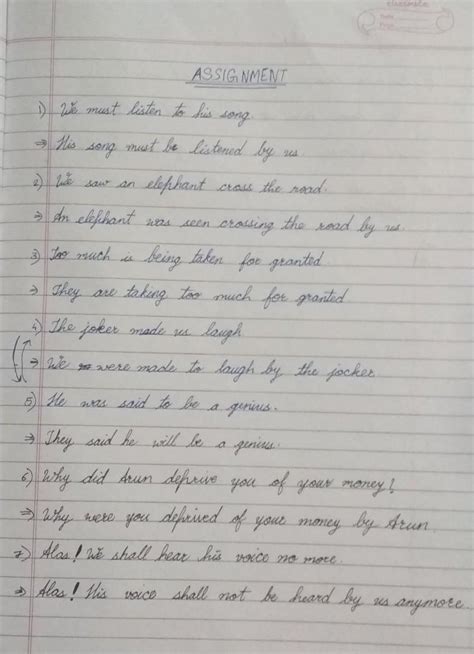 ASSIGNMENT
1) We must listen to his song.
⇒ His song must be listened by us.
2) We saw an elephant cross the road.
⇒ An elephant was seen crossing the road by us.
3) Too much is being taken for granted
⇒ They are taking too much for granted
4) The joker made us laugh.
⇒ We were made to laugh by the jocker.
5) He was said to be a genius.
⇒ They said he will be a genius.
6) Why did Arun deprive you of your money!
⇒ Why were you deprived of your money by Arun.
7) Alas! We shall hear his voice no more.
⇒ Alas! His voice shall not be heard by us anymore.